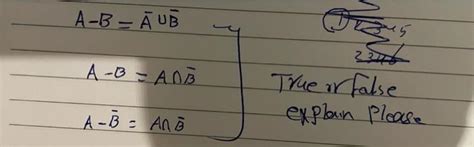 A-B = A̅ ∪ B̅
A-B = A∩B̅
A-B̅ = A∩B̅
True or False
explain please